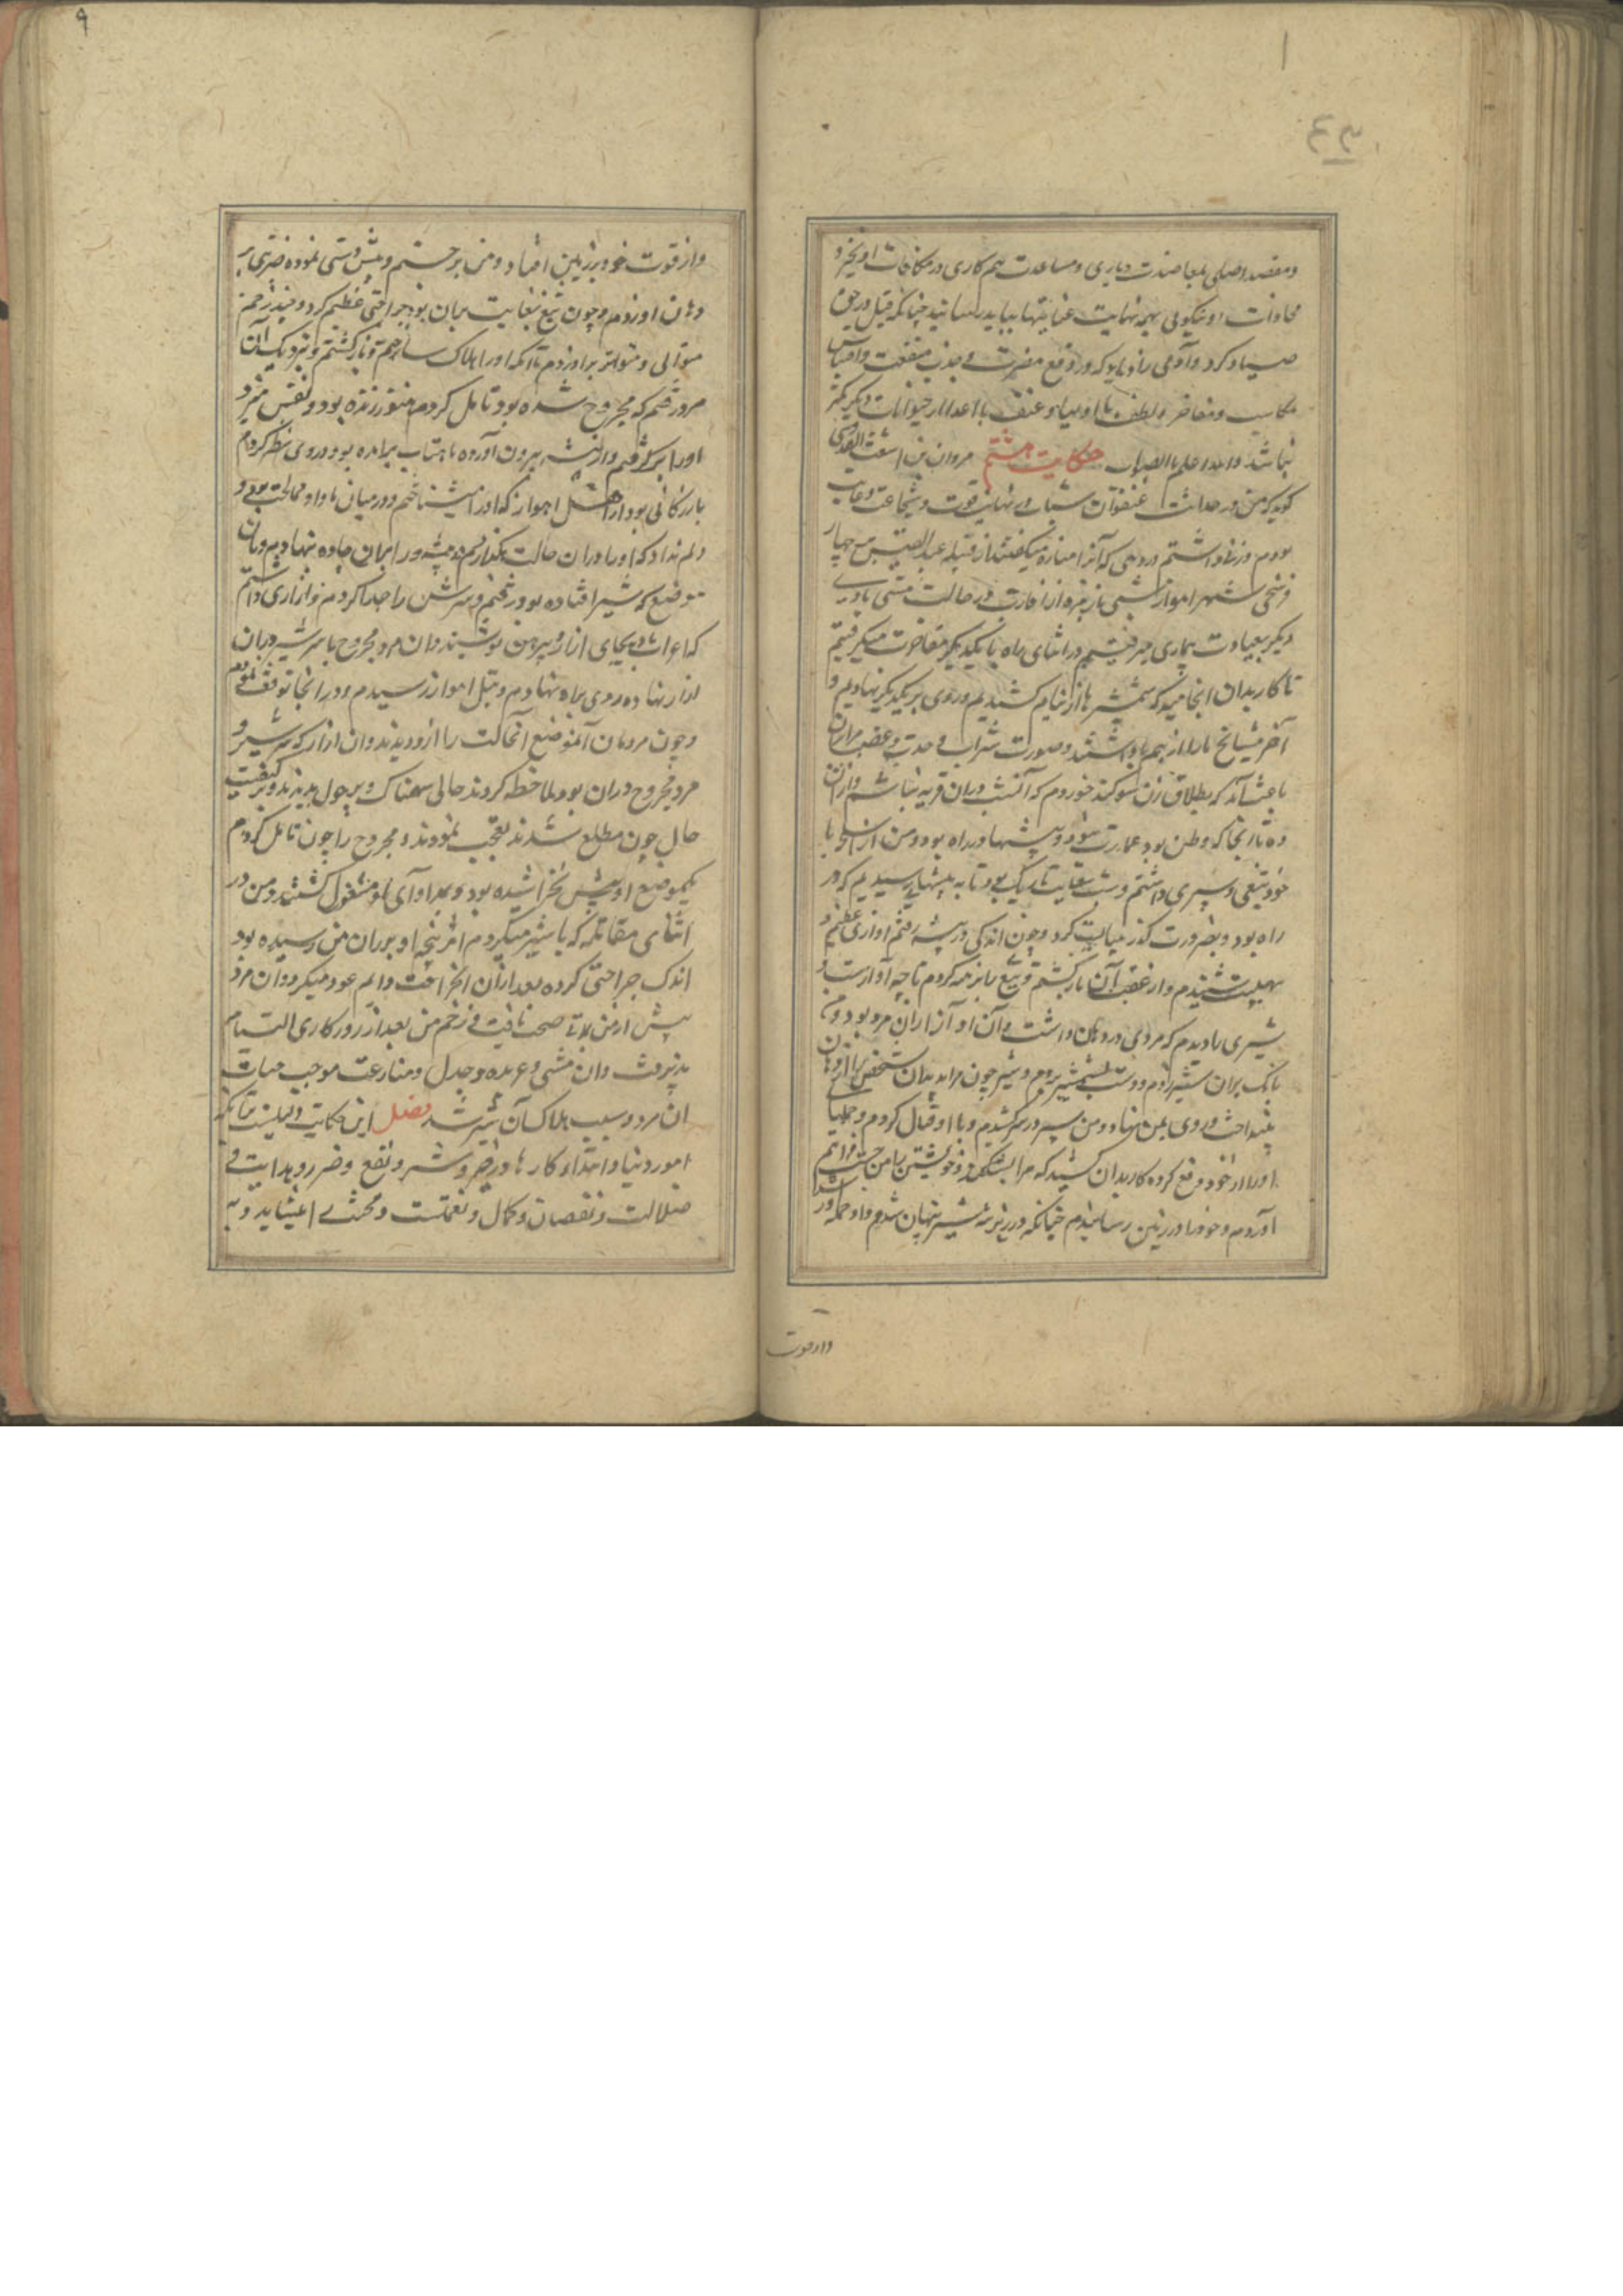 ومقصد اصلی بمعاضدت ویاری ومساعدت هم کاری در مکافات او بخیر و
محاذات او نیکویی بهمه نهایت غایتها بباید رسانید چنانکه فیل در حق
صیاد کرد وآدمی زاد باید که در دفع مضرت و جذب منفعت و اقتباس
مکاسب ومفاخر ولطف با اولیا وعنف با اعدا از حیوانات دیگر کمتر
نباشد والله اعلم بالصواب حکایت هشتم مروان بن
گوید که من در حداثت عنفوان شباب در نهایت قوت وشجاعت و
بودم وزنی داشتم در دهی که آنرا مناره میگفتند از قبیله عبد القیس بر چهار
فرسنگی شهر اهواز شبی باز در حالت مستی با
دیگر بعیادت بیماری میرفتیم در اثنای راه با یکدیگر مفاخرت میکر
تا کار بدان انجامید که شمشیرها از نیام کشیدیم و روی بر یکدیگر نهادیم و
آخر مشایخ ما را از هم باز داشتند وصورت شراب و حدت وغضب مرا بران
باعث آمد که بطلاق زن سوکند خوردم که آنشب در ان قریه نباشم وازان
ده تا آنجا که وطن بود عمارت نبود و بیشها در راه بود ومن از آنجا با
خود تیغی وسپری داشتم وشب بغایت تاریک بود تا به بیشهای رسیدیم که در
راه بود و بضرورت گذر میبایست کرد وچون اندکی در بیشه رفتم آوازی عظیم و
بهیبت شنیدم واز عقب آن باز کشتم و تیغ را بر مه کردم تا چه آوازست
شیری را دیدم که مردی در دهان داشت وآن آواز ازان مرد بود ومن
بانک بران شیر زدم ودست بشمشیر بردم وشیر چون مرا بدید آن شخص را از دهان
بینداخت و روی بمن نهاد ومن سپر در سر کشیدم وبا او قتال کردم و حملهای
او را از خود دفع کرده کار بدان کشید که مرا بشکند وخویشتن را من فراهم
آوردم وخود را در زمین رسانیدم چنانکه در زیر سپر پنهان شدم واو حمله آورد
واز قوت
واز قوت خود بر زمین افتاد ومن برجستم وپیش دستی نموده ضربتی بر
دهان او زدم وچون تیغ بغایت بران بود جراحتی عظیم کرد وچند زخم
متوالی ومتواتر بر او زدم تا آنکه او را هلاک ساختم و باز کشتم و نزدیک آن
مرد رفتم که مجروح شده بود تامل کردم هنوز زنده بود ونفس میزد
او را بر گرفتم واز بیشه بیرون آوردم ماهتاب برآمده بود در وی نظر کردم
بازرگانی بود از اهل اهواز که او را میشناختم ودر میان ما و او مخالطت بودی و
دلم نداد که او را دران حالت بگذارم از بیشه در ایران جاده نهادم وبان
موضع که شیر افتاده بود رفتم و سرش را جدا کردم وازاری داشتم
که اعراب بجای ازار و پیرهن پوشیدند وآن مرد مجروح با سر شیر دران
ازار نهاده روی براه نهادم وقبل اهواز رسیدم ودر آنجا توقف نمودم
وچون مردمان آنموضع آنحالت را از دور بدیدند وآن ازار که سر شیر و
مرد مجروح دران بود ملاحظه کردند حالی سهمناک و پر هول بدیدند و بر کیفیت
حال چون مطلع شدند تعجب نمودند ومجروح را چون تامل کردم
یکموضع او بیش نخراشیده بود وبمداوای او مشغول گشتند ومن در
اثنای مقاتله که با شیر میکردم اثر پنجه او بر ران من رسیده بود
اندک جراحتی کرده بعد ازان انحراف یافت والم عود میکرد وآن مرد
پیش از من صحت یافت و زخم من بعد از روزگاری التیام
پذیرفت وآن مستی وعربده وجدل ومنازعت موجب حیات
آن مرد وسبب هلاک آن شیر شد فصل این حکایت دلیلست بآنکه
امور دنیا و ابتداء کارها در خیر وشر ونفع وضر وهدایت و
ضلالت ونقصان وکمال ونعمت ومحنت